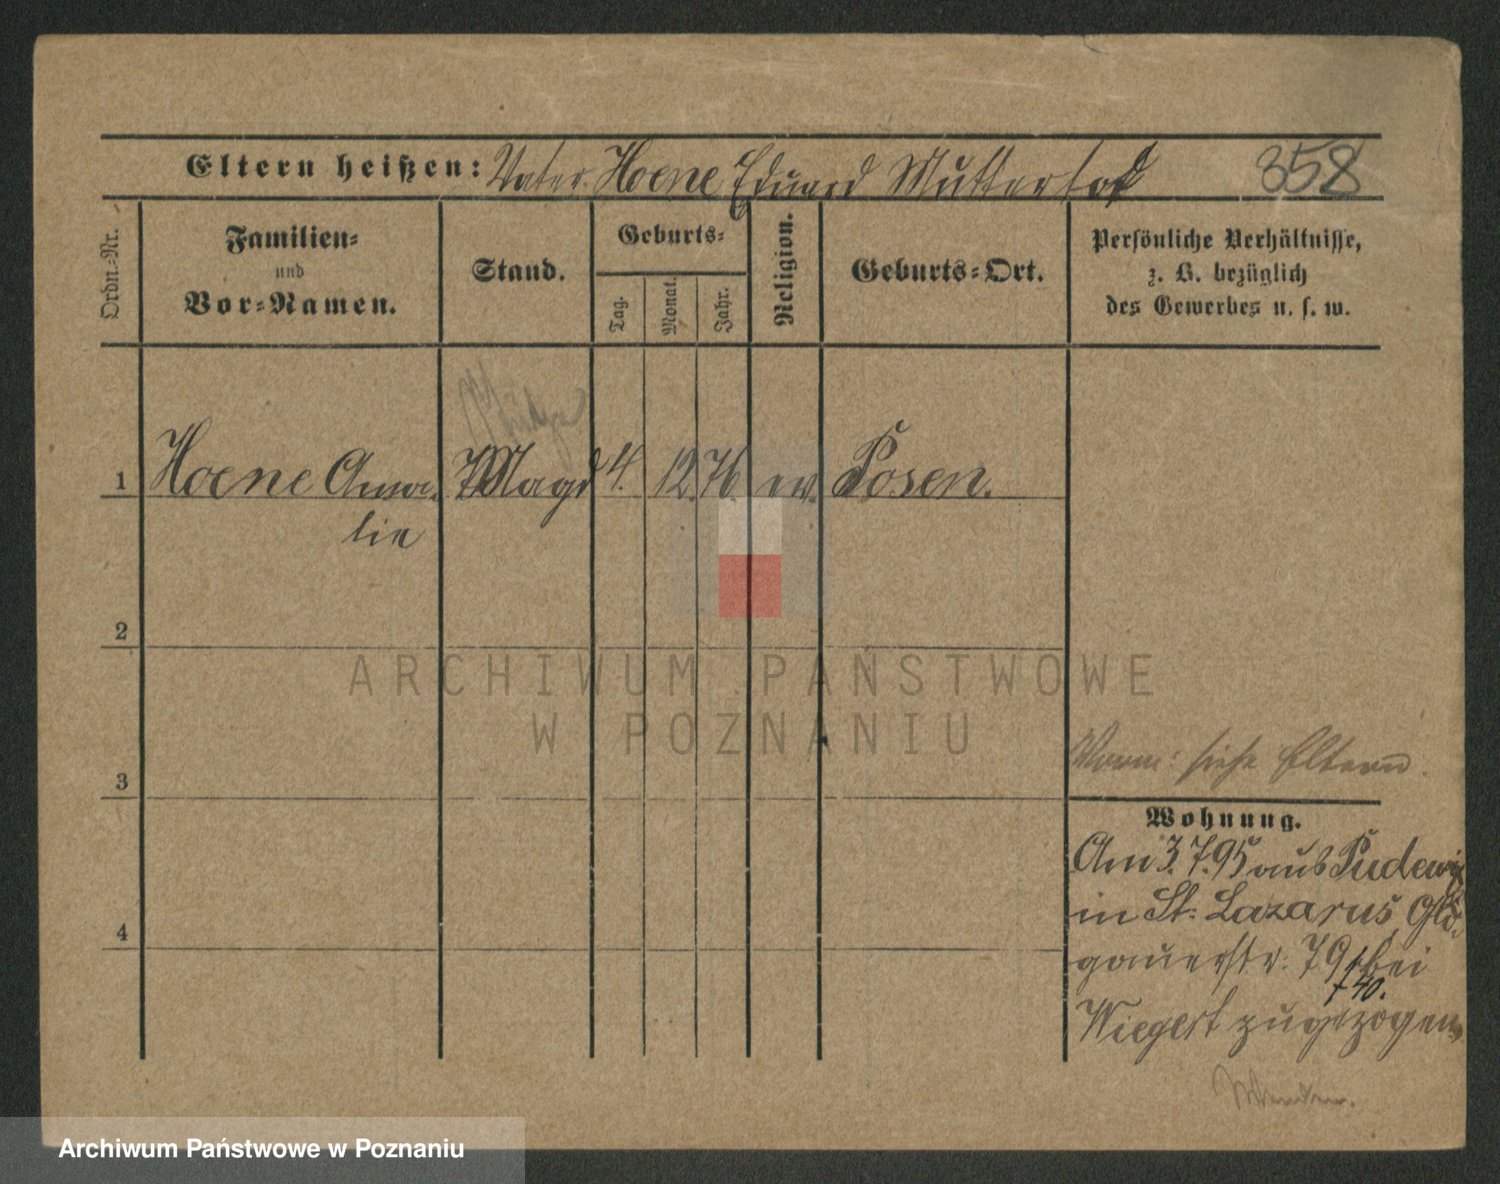 Eltern heißen: Vater Hoene Eduard Mutter tot 358
Ordn.-Nr.
Familien-
und
Vor-Namen.
Stand.
Geburts-
Tag.
Monat.
Jahr.
Religion.
Geburts-Ort.
Persönliche Verhältnisse,
z. B. bezüglich
des Gewerbes u. s. w.
1 Hoene Ama- Magd 4. 12. 76. ev. Posen.
lie
2
3
4
Vorm: siehe Eltern.
Wohnung.
Am 3.7.95 aus Pudewitz
in St. Lazarus, Glo-
gauerstr. 79 bei
t 40.
Wiegert zugezogen
ARCHIWUM PAŃSTWOWE
W POZNANIU
Archiwum Państwowe w Poznaniu